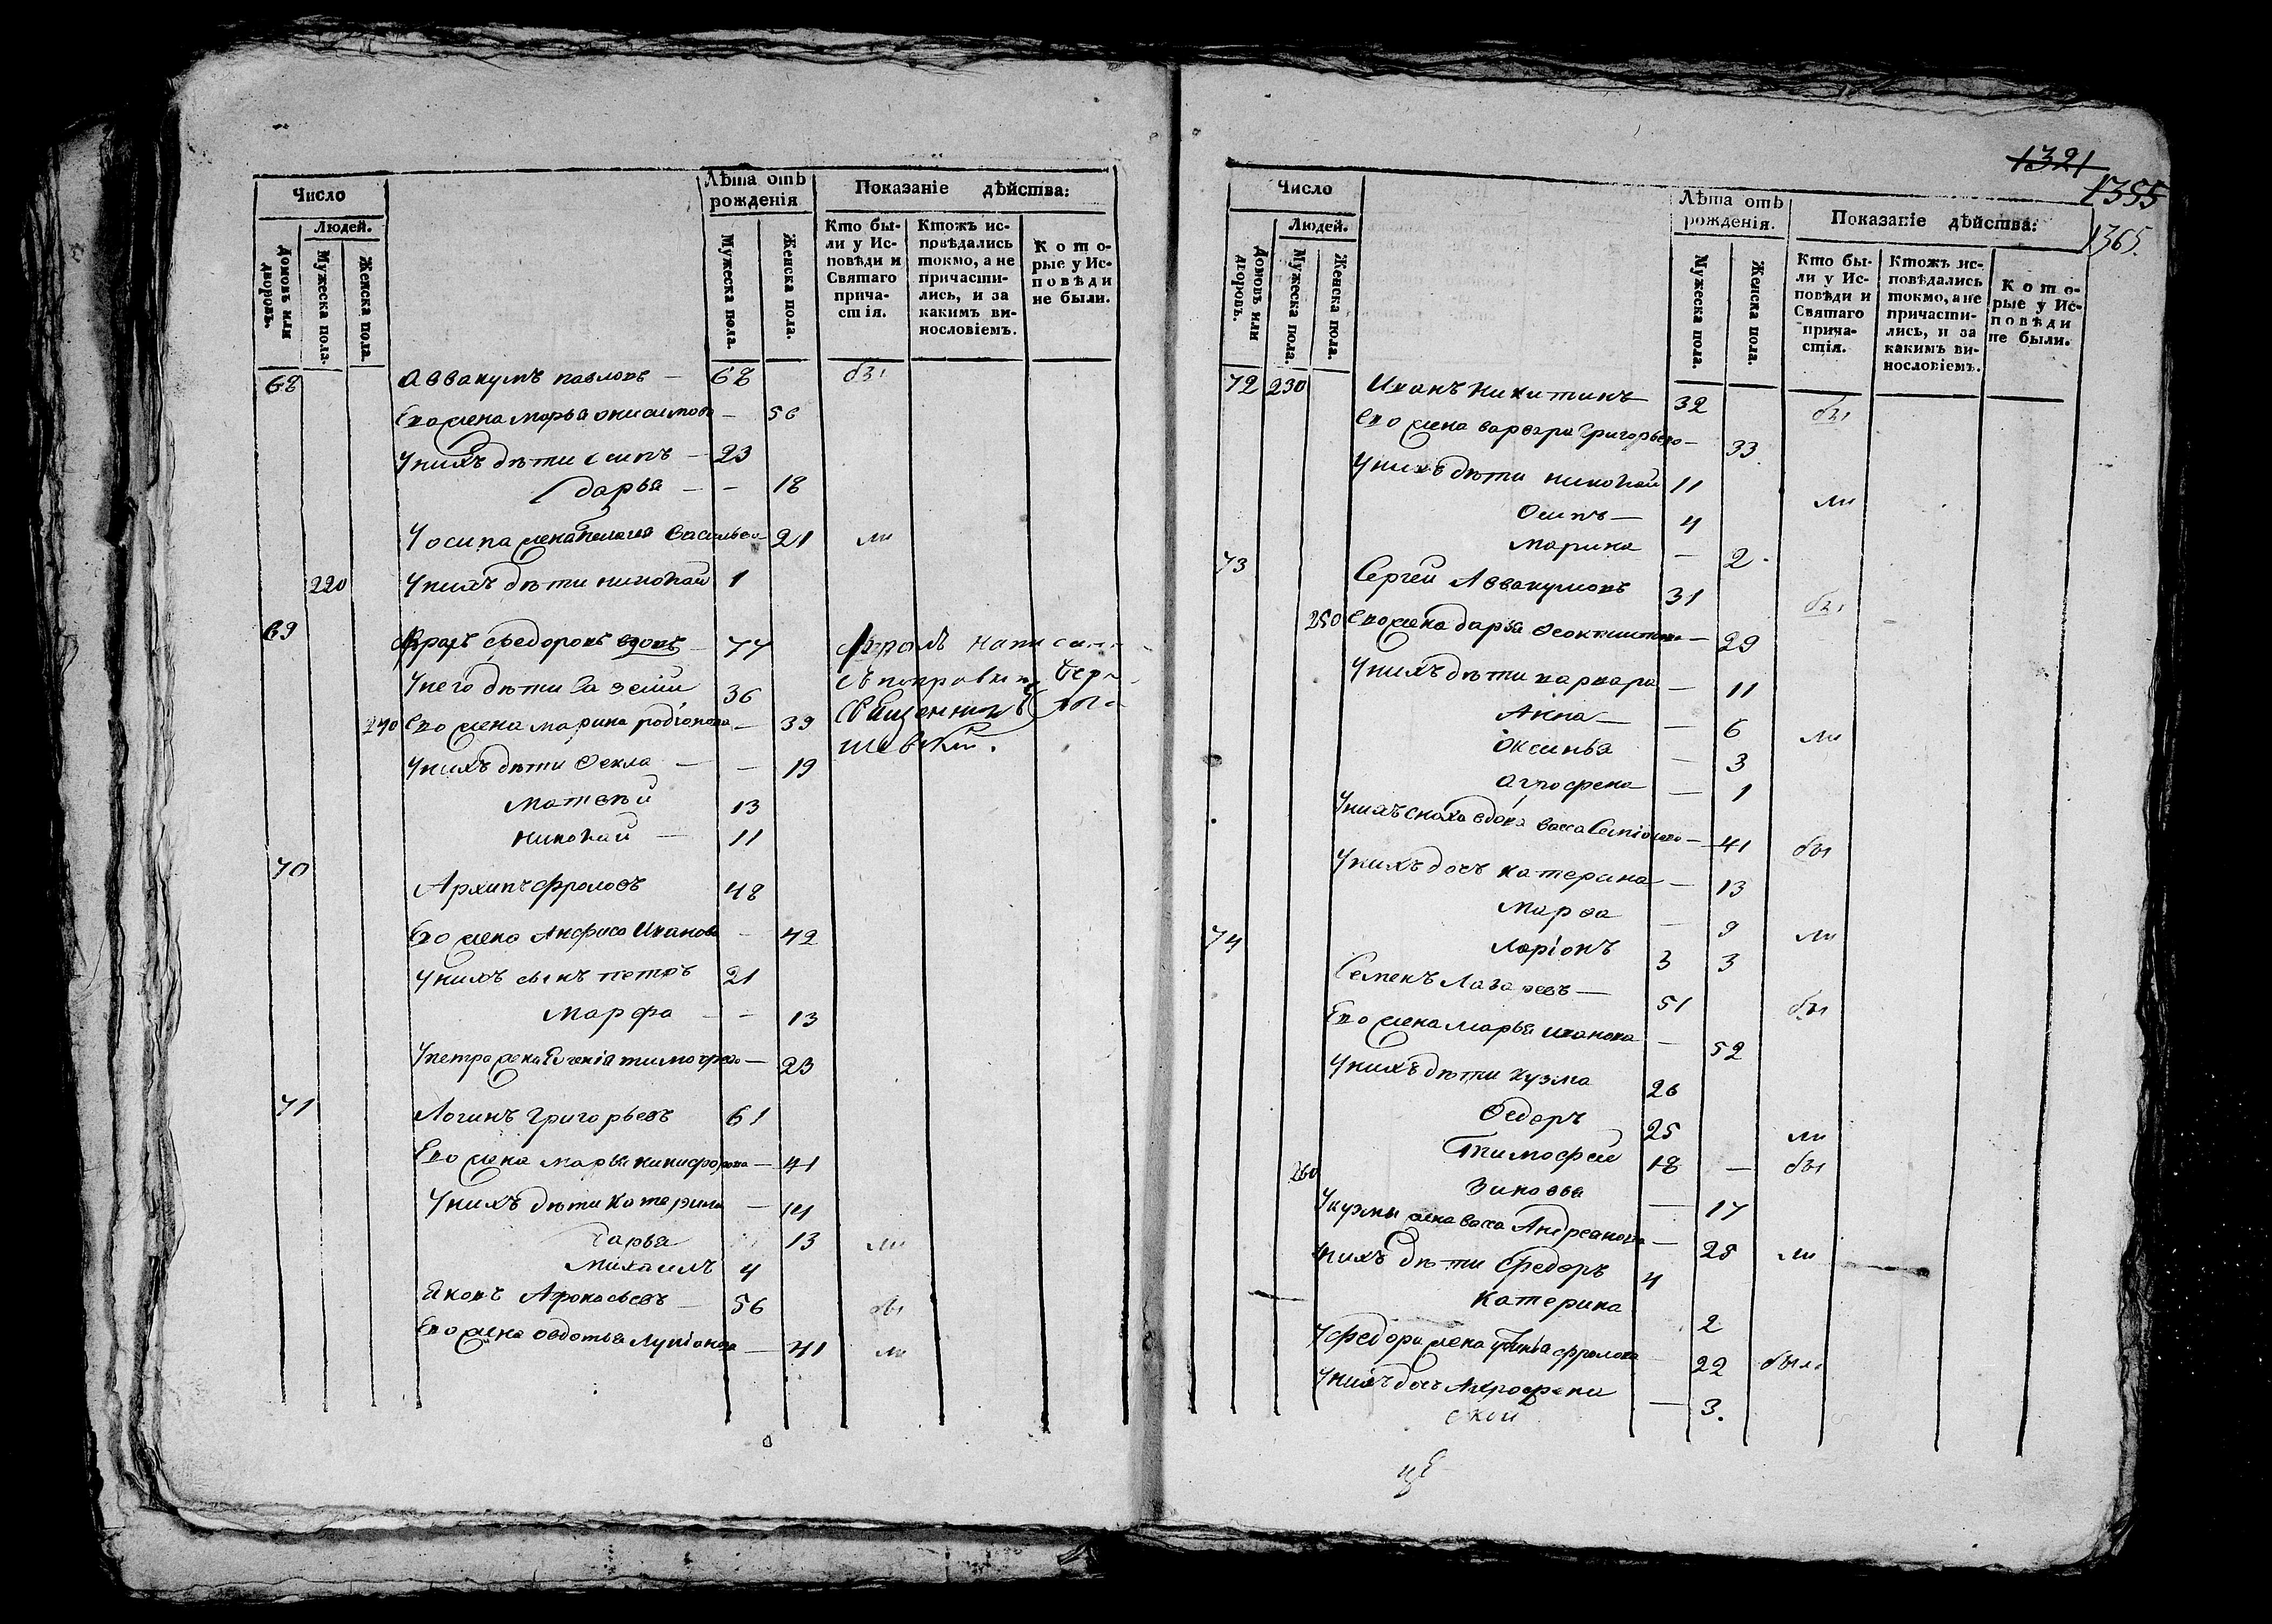 Число
Людей.
Домовъ или дворовъ.
Мужеска пола.
Женска пола.
Лѣта отъ рожденія
Мужеска пола.
Женска пола.
Показаніе дѣйства:
Кто были у Исповѣди и Святаго причастія.
Ктожъ исповѣдались токмо, а не причастились, и за какимъ винословіемъ.
Которые у Исповѣди не были.
68 Аввакумъ павловъ — 68 бы
Его жена Марья онисимова — 56
У нихъ дѣти осипъ — 23
дарья — — 18
У осипа жена Пелагея Васильева 21 ли
220 У нихъ дѣти николай 1
69 Фролъ Федоровъ вдовъ — 77 Фролъ написанъ
У него дѣти 36 съ поправкою
240 Его жена марина родіонова — 39 Священникъ
У нихъ дѣти Ѳекла — — 19
Матвѣй 13
николай — 11
70 Архипъ Фроловъ 48
Его жена Анфиса Иванова — 42
У нихъ сынъ петръ 21
Марфа — — 13
У петра жена тимофеева — 23
71 Логинъ Григорьевъ 61
Его жена марья никифорова — 41
У нихъ дѣти Катерина — 14
дарья 13 ли
Михаилъ 4
Яковъ Афонасьевъ — 56 бы
Его жена овдотья — 41 ли
1321
1355
1365.
Число
Людей.
Домовъ или дворовъ.
Мужеска пола.
Женска пола.
Лѣта отъ рожденія.
Мужеска пола.
Женска пола.
Показаніе дѣйства:
Кто были у Исповѣди и Святаго причастія.
Ктожъ исповѣдались токмо, а не причастились, и за какимъ винословіемъ.
Которые у Исповѣди не были.
72 230 Иванъ Никитинъ 32 бы
Его жена варвара Григорьева — 33
У нихъ дѣти николай 11 ли
Осипъ — 4
Марина — 2
73 Сергей Аввакумовъ 31 бы
250 Его жена дарья Ѳеоктистова — 29
У нихъ дѣти варвара — 11
Анна — — 6 ли
Оксинья — 3
Агрофена — 1
У нихъ сноха вдова васса — 41 бы
У нихъ дочь катерина — 13
Марѳа — 9 ли
Ларіонъ 3 3
74 Семенъ Лазаревъ — 51 бы
Его жена Марья иванова — 52
У нихъ дѣти кузма 26
Ѳедоръ 25 ли
Тимофей 18 — бы
260 Зиновья — 17
У кузмы жена васса Андреанова — 25 ли
У нихъ дѣти Федоръ 4
Катерина 2
У Федора жена фролова 22 были
У нихъ дочь Агрофена — 3.